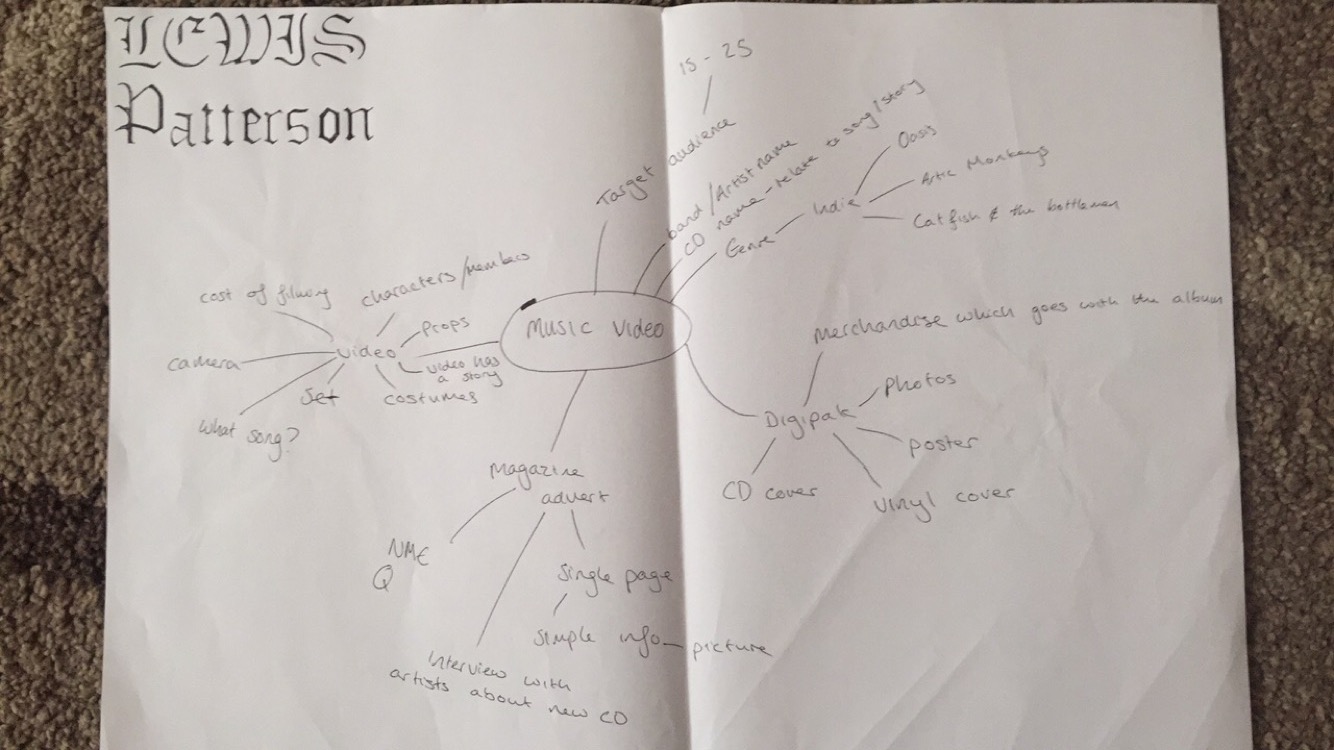 LEWIS
Patterson
15 - 25
Target audience
band / Artist name
CD name - relate to song / story
Genre
Indie
Oasis
Artic Monkeys
Catfish & the bottlemen
Music Video
cost of filming
characters/members
Props
camera
video
video has
a story
Set
costumes
What song?
Merchandise which goes with the album
Digipak
Photos
poster
CD cover
vinyl cover
Magazine
advert
NME
Q
Single page
Simple info - picture
Interview with
artists about new CD